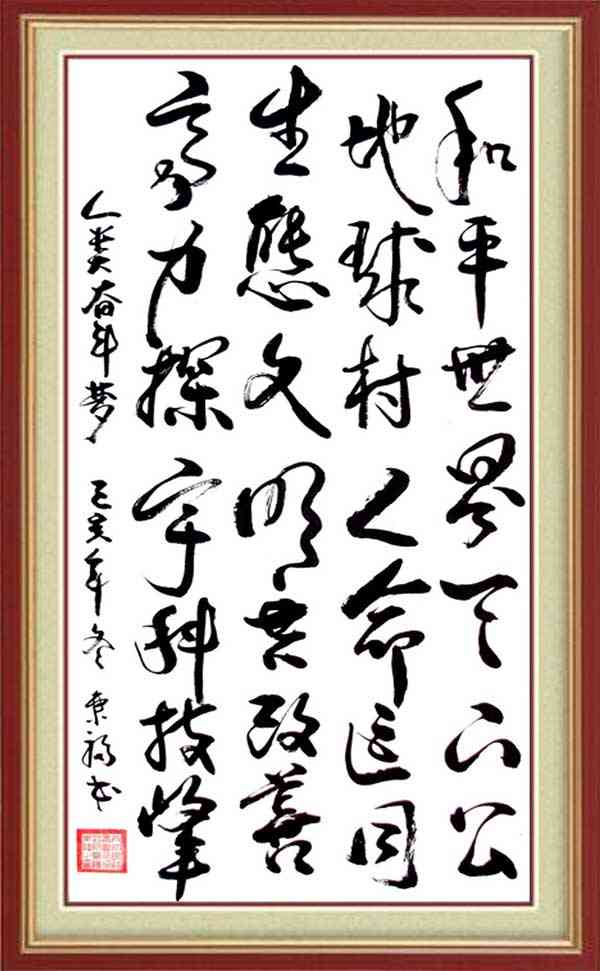 和平世界天下公
地球村人命运同
生態文明共改善
力探宇科技
人类 梦 己亥年冬 福书